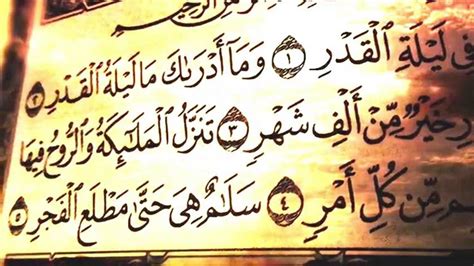 ٱلرَّحِيمِ
فِى لَيْلَةِ ٱلْقَدْرِ ١ وَمَآ أَدْرَىٰكَ مَا لَيْلَةُ ٱلْقَدْرِ ٢
رِ خَيْرٌ مِّنْ أَلْفِ شَهْرٍ ٣ تَنَزَّلُ ٱلْمَلَٰٓئِكَةُ وَٱلرُّوحُ فِيهَا
م مِّن كُلِّ أَمْرٍ ٤ سَلَٰمٌ هِىَ حَتَّىٰ مَطْلَعِ ٱلْفَجْرِ ٥